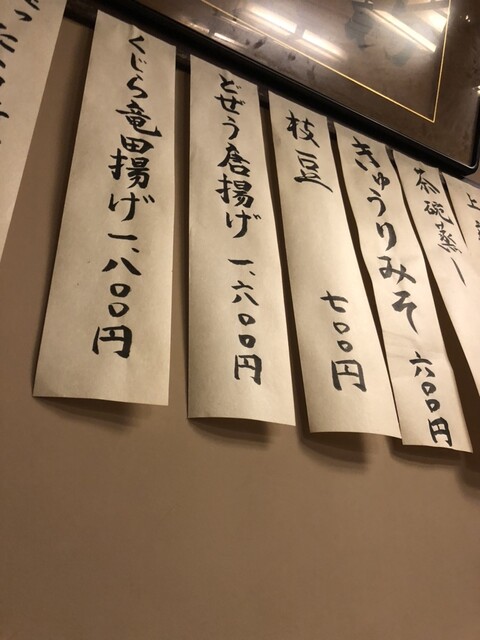 くじら竜田揚げ 一、八〇〇円
どぜう唐揚げ 一、六〇〇円
枝豆 七〇〇円
きゅうりみそ 六〇〇円
茶碗蒸し
上